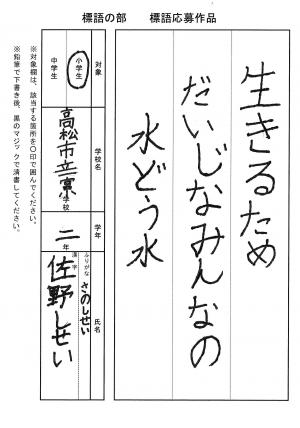 標語の部　標語応募作品
生きるため
だいじなみんなの
水どう水
対象
小学生
中学生
学校名
高松市立 学校
学年
二年
ふりがな
さのしせい
漢字
氏名
佐野しせい
※対象欄は、該当する箇所を〇印で囲んでください。
※鉛筆で下書き後、黒のマジックで清書してください。